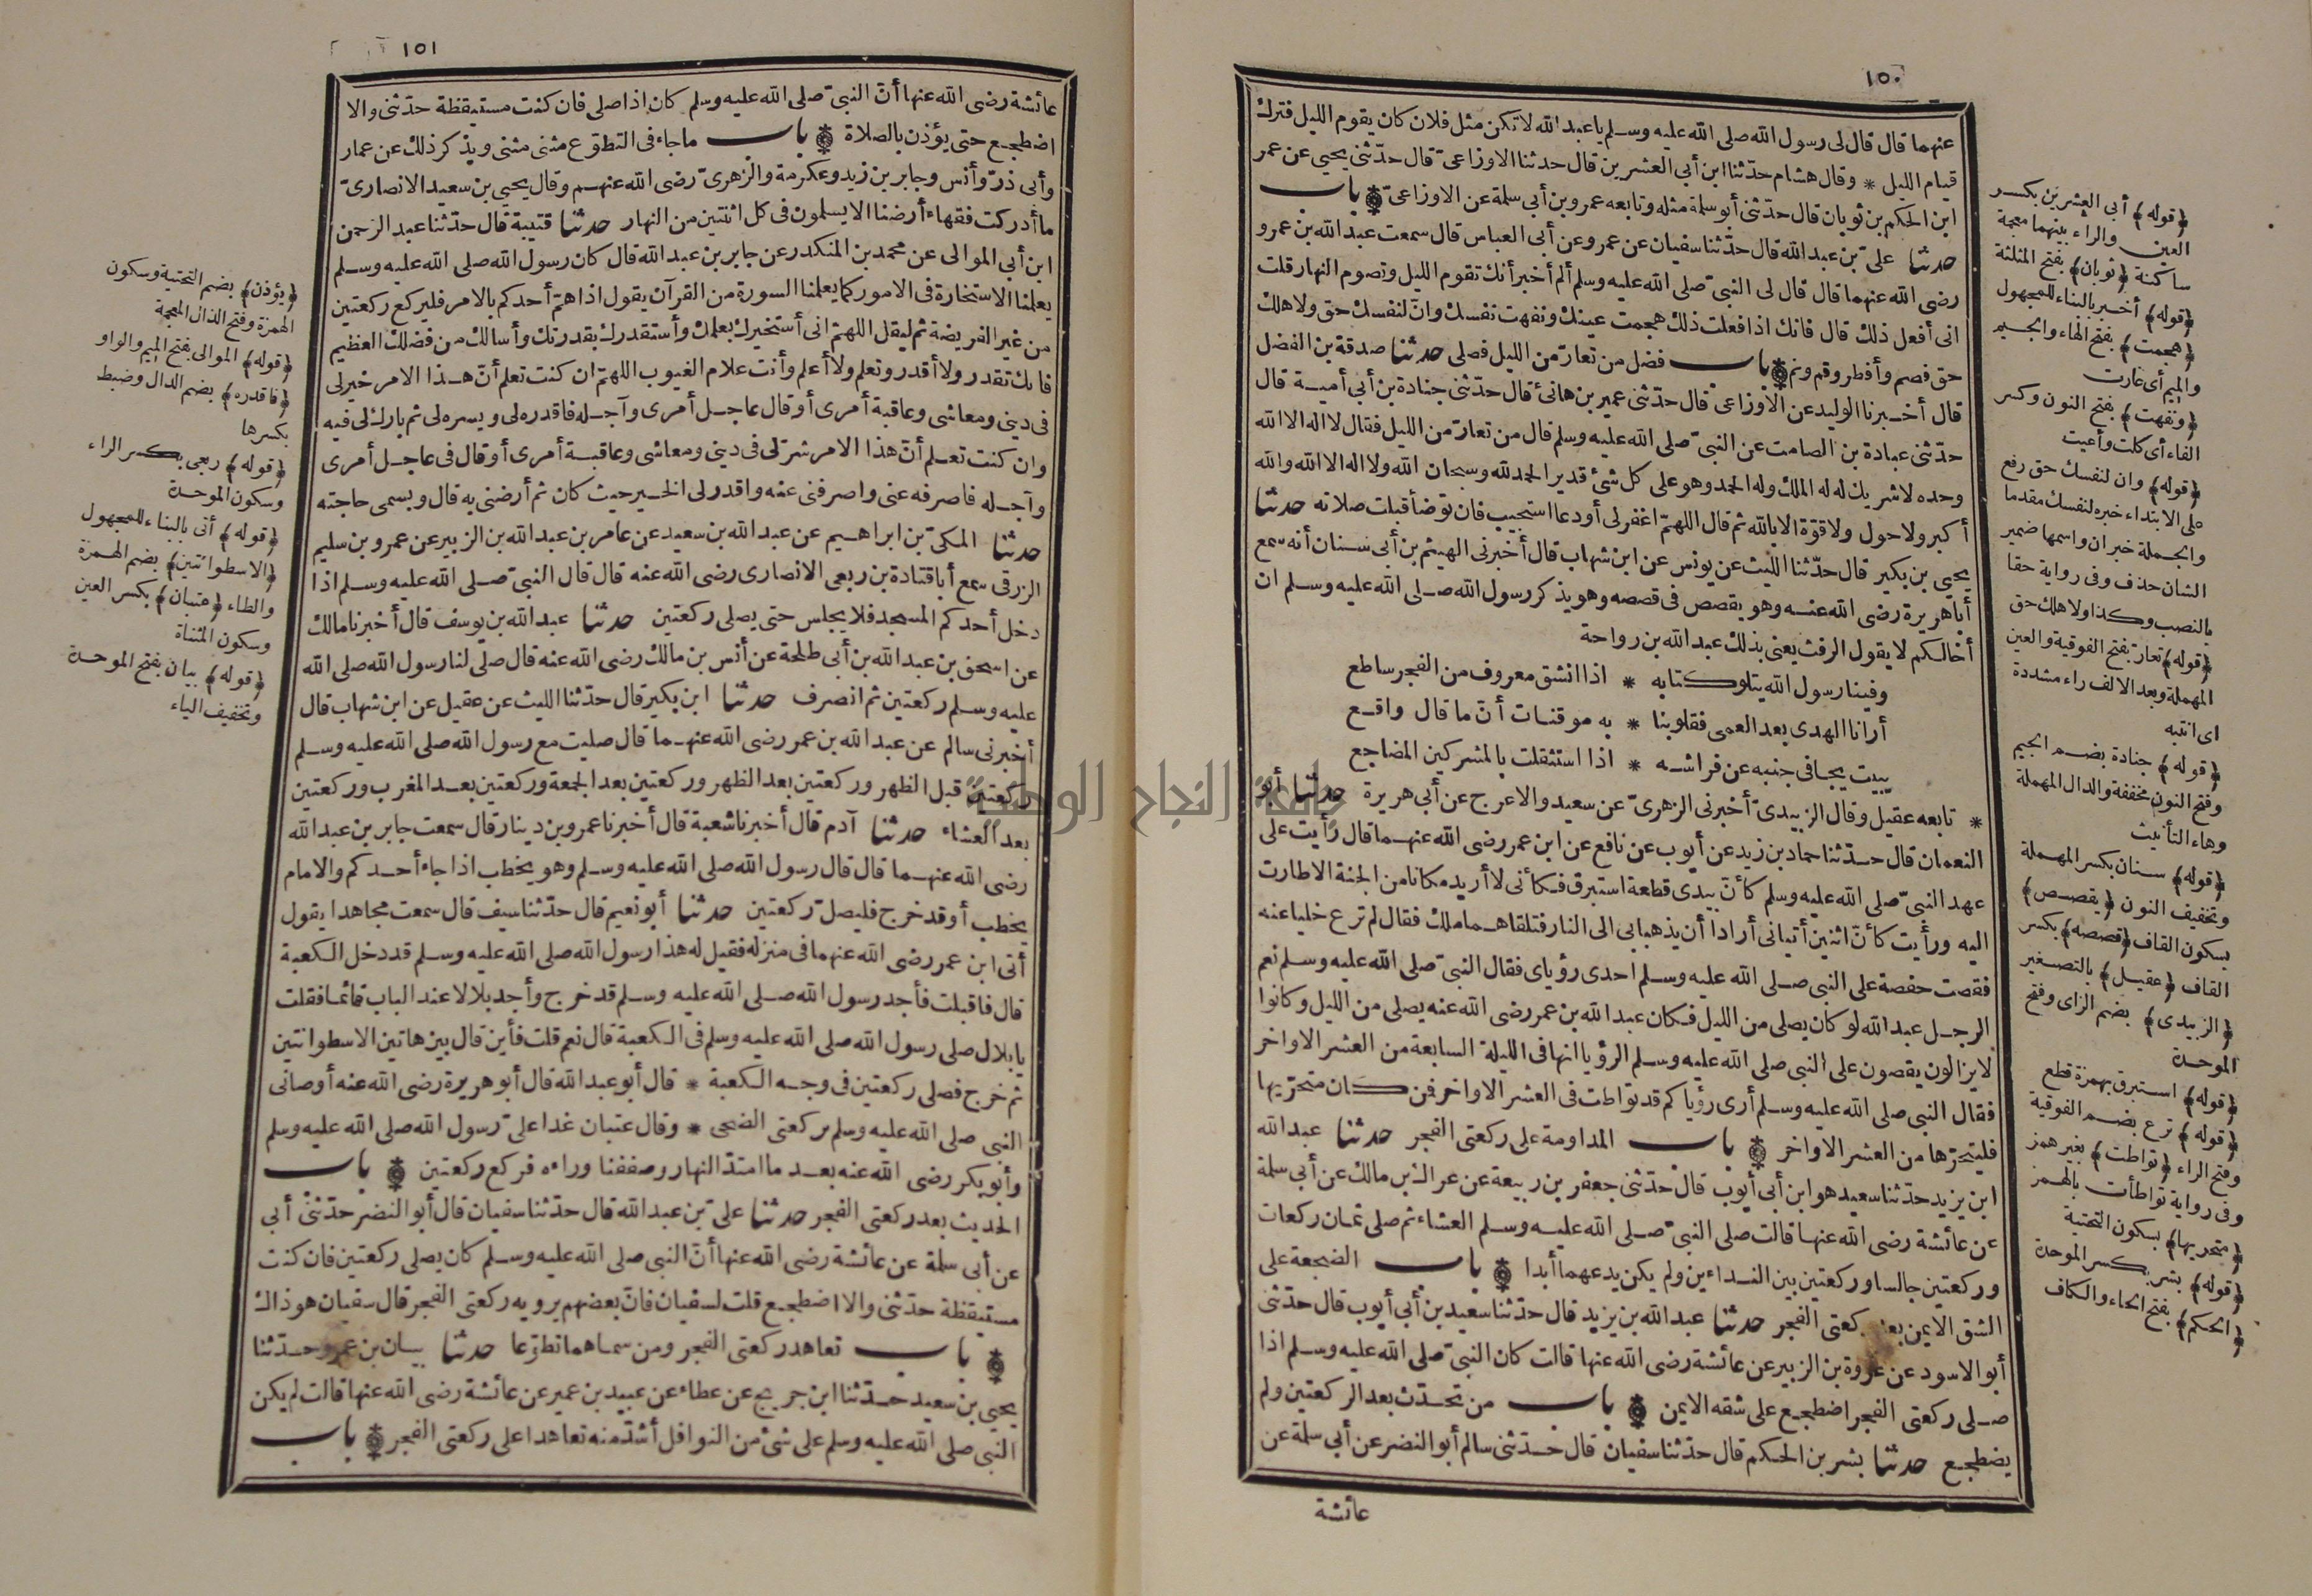 ١٥٠
عنهما قال قال لى رسول الله صلى الله عليه وسلم يا عبد الله لا تكن مثل فلان كان يقوم الليل فترك
قيام الليل * وقال هشام حدّثنا ابن أبي العشرين قال حدثنا الاوزاعىّ قال حدّثنى يحيي عن عمر
ابن الحكم بن ثوبان قال حدّثنى أبو سلمة مثله وتابعه عمرو بن أبى سلمة عن الاوزاعىّ باب
حدثنا علىّ بن عبد الله قال حدّثنا سفيان عن عمرو عن أبى العباس قال سمعت عبد الله بن عمرو
رضى الله عنهما قال قال لى النبىّ صلى الله عليه وسلم ألم أخبر أنك تقوم الليل وتصوم النهار قلت
انى أفعل ذلك قال فانك اذا فعلت ذلك هجمت عينك ونفهت نفسك وانّ لنفسك حق ولاهلك
حق فصم وأفطر وقم ونم باب فضل من تعارّ من الليل فصلى حدثنا صدقة بن الفضل
قال أخبرنا الوليد عن الاوزاعى قال حدّثنى عمير بن هانئ قال حدّثنى جنادة بن أبى أمية قال
حدّثنى عبادة بن الصامت عن النبىّ صلى الله عليه وسلم قال من تعارّ من الليل فقال لا اله الا الله
وحده لا شريك له له الملك وله الحمد وهو على كل شئ قدير الحمد لله وسبحان الله ولا اله الا الله والله
أكبر ولا حول ولا قوّة الا بالله ثم قال اللهمّ اغفر لى أو دعا استجيب فان توضأ قبلت صلاته حدثنا
يحيي بن بكير قال حدّثنا الليث عن يونس عن ابن شهاب قال أخبرنى الهيثم بن أبى سنان أنه سمع
أبا هريرة رضى الله عنه وهو يقصص فى قصصه وهو يذكر رسول الله صلى الله عليه وسلم ان
أخا لكم لا يقول الرفث يعنى بذلك عبد الله بن رواحة
وفينا رسول الله يتلو كتابه * اذا انشق معروف من الفجر ساطع
أرانا الهدى بعد العمى فقلوبنا * به موقنات أنّ ما قال واقع
يبيت يجافى جنبه عن فراشه * اذا استثقلت بالمشركين المضاجع
* تابعه عقيل وقال الزبيدىّ أخبرنى الزهرىّ عن سعيد والاعرج عن أبى هريرة حدثنا أبو
النعمان قال حدّثنا حماد بن زيد عن أيوب عن نافع عن ابن عمر رضى الله عنهما قال رأيت على
عهد النبىّ صلى الله عليه وسلم كأنّ بيدى قطعة استبرق فكأنى لا أريد مكانا من الجنة الا طارت
اليه ورأيت كأنّ اثنين أتيانى أرادا أن يذهبا بى الى النار فتلقاهما ملك فقال لم ترع خليا عنه
فقصت حفصة على النبى صلى الله عليه وسلم احدى رؤياى فقال النبىّ صلى الله عليه وسلم نعم
الرجل عبد الله لو كان يصلى من الليل فكان عبد الله بن عمر رضى الله عنه يصلى من الليل وكانوا
لا يزالون يقصون على النبى صلى الله عليه وسلم الرؤيا انها فى الليلة السابعة من العشر الاواخر
فقال النبى صلى الله عليه وسلم أرى رؤياكم قد تواطت فى العشر الاواخر فمن كان متحرّيها
فليتحرّها من العشر الاواخر باب المداومة على ركعتى الفجر حدثنا عبد الله
ابن يزيد حدّثنا سعيد هو ابن أبى أيوب قال حدّثنى جعفر بن ربيعة عن عراك بن مالك عن أبى سلمة
عن عائشة رضى الله عنها قالت صلى النبىّ صلى الله عليه وسلم العشاء ثم صلى ثمان ركعات
وركعتين جالسا وركعتين بين النداءين ولم يكن يدعهما أبدا باب الضجعة على
الشق الايمن بعد ركعتى الفجر حدثنا عبد الله بن يزيد قال حدّثنا سعيد بن أبى أيوب قال حدّثنى
أبو الاسود عن عروة بن الزبير عن عائشة رضى الله عنها قالت كان النبىّ صلى الله عليه وسلم اذا
صلى ركعتى الفجر اضطجع على شقه الايمن باب من تحدّث بعد الركعتين ولم
يضطجع حدثنا بشر بن الحكم قال حدّثنا سفيان قال حدّثنى سالم أبو النضر عن أبى سلمة عن
عائشة
﴿قوله﴾ أبى العشرين بكسر
العين والراء بينهما معجمة
ساكنة ﴿ثوبان﴾ بفتح المثلثة
﴿قوله﴾ أخبر بالبناء للمجهول
﴿هجمت﴾ بفتح الهاء والجيم
والميم أى غارت
﴿ونفهت﴾ بفتح النون وكسر
الفاء أى كلت وأعيت
﴿قوله﴾ وان لنفسك حق رفع
على الابتداء خبره لنفسك مقدما
والجملة خبر ان واسمها ضمير
الشان حذف وفى رواية حقا
بالنصب وكذا ولاهلك حق
﴿قوله﴾ تعارّ بفتح الفوقية والعين
المهملة وبعد الالف راء مشددة
اى انتبه
﴿قوله﴾ جنادة بضم الجيم
وفتح النون مخففة والدال المهملة
وهاء التأنيث
﴿قوله﴾ سنان بكسر المهملة
وتخفيف النون ﴿يقصص﴾
بسكون القاف ﴿قصصه﴾ بكسر
القاف ﴿عقيل﴾ بالتصغير
﴿الزبيدى﴾ بضم الزاى وفتح
الموحدة
﴿قوله﴾ استبرق بهمزة قطع
﴿قوله﴾ ترع بضم الفوقية
وفتح الراء ﴿تواطت﴾ بغير همز
وفى رواية تواطأت بالهمز
﴿متحريها﴾ بسكون التحتية
﴿قوله﴾ بشر بكسر الموحدة
﴿الحكم﴾ بفتح الحاء والكاف
١٥١
عائشة رضى الله عنها أنّ النبىّ صلى الله عليه وسلم كان اذا صلى فان كنت مستيقظة حدّثنى والا
اضطجع حتى يؤذن بالصلاة باب ما جاء فى التطوّع مثنى مثنى ويذكر ذلك عن عمار
وأبى ذرّ وأنس وجابر بن زيد وعكرمة والزهرىّ رضى الله عنهم وقال يحيي بن سعيد الانصارىّ
ما أدركت فقهاء أرضنا الا يسلمون فى كل اثنتين من النهار حدثنا قتيبة قال حدّثنا عبد الرحمن
ابن أبي الموالى عن محمد بن المنكدر عن جابر بن عبد الله قال كان رسول الله صلى الله عليه وسلم
يعلمنا الاستخارة فى الامور كما يعلمنا السورة من القرآن يقول اذا همّ أحدكم بالامر فليركع ركعتين
من غير الفريضة ثم ليقل اللهمّ انى أستخيرك بعلمك وأستقدرك بقدرتك وأسالك من فضلك العظيم
فانك تقدر ولا أقدر وتعلم ولا أعلم وأنت علام الغيوب اللهمّ ان كنت تعلم أنّ هذا الامر خير لى
فى دينى ومعاشى وعاقبة أمرى أو قال عاجل أمرى وآجله فاقدره لى ويسره لى ثم بارك لى فيه
وان كنت تعلم أنّ هذا الامر شر لى فى دينى ومعاشى وعاقبة أمرى أو قال فى عاجل أمرى
وآجله فاصرفه عنى واصرفنى عنه واقدر لى الخير حيث كان ثم أرضنى به قال ويسمى حاجته
حدثنا المكىّ بن ابراهيم عن عبد الله بن سعيد عن عامر بن عبد الله بن الزبير عن عمرو بن سليم
الزرقى سمع أبا قتادة بن ربعى الانصارى رضى الله عنه قال قال النبىّ صلى الله عليه وسلم اذا
دخل أحدكم المسجد فلا يجلس حتى يصلى ركعتين حدثنا عبد الله بن يوسف قال أخبرنا مالك
عن اسحق بن عبد الله بن أبي طلحة عن أنس بن مالك رضى الله عنه قال صلى لنا رسول الله صلى الله
عليه وسلم ركعتين ثم انصرف حدثنا ابن بكير قال حدّثنا الليث عن عقيل عن ابن شهاب قال
أخبرنى سالم عن عبد الله بن عمر رضى الله عنهما قال صليت مع رسول الله صلى الله عليه وسلم
ركعتين قبل الظهر وركعتين بعد الظهر وركعتين بعد الجمعة وركعتين بعد المغرب وركعتين
بعد العشاء حدثنا آدم قال أخبرنا شعبة قال أخبرنا عمرو بن دينار قال سمعت جابر بن عبد الله
رضى الله عنهما قال قال رسول الله صلى الله عليه وسلم وهو يخطب اذا جاء أحدكم والامام
يخطب أو قد خرج فليصلّ ركعتين حدثنا أبو نعيم قال حدّثنا سيف قال سمعت مجاهدا يقول
أتى ابن عمر رضى الله عنهما فى منزله فقيل له هذا رسول الله صلى الله عليه وسلم قد دخل الكعبة
قال فاقبلت فأجد رسول الله صلى الله عليه وسلم قد خرج وأجد بلالا عند الباب قائما فقلت
يا بلال صلى رسول الله صلى الله عليه وسلم فى الكعبة قال نعم قلت فأين قال بين هاتين الاسطوانتين
ثم خرج فصلى ركعتين فى وجه الكعبة * قال أبو عبد الله قال أبو هريرة رضى الله عنه أوصانى
النبى صلى الله عليه وسلم بركعتى الضحى * وقال عتبان غدا علىّ رسول الله صلى الله عليه وسلم
وأبو بكر رضى الله عنه بعد ما امتدّ النهار وصففنا وراءه فركع ركعتين باب
الحديث بعد ركعتى الفجر حدثنا علىّ بن عبد الله قال حدّثنا سفيان قال أبو النضر حدّثنى أبي
عن أبى سلمة عن عائشة رضى الله عنها أنّ النبى صلى الله عليه وسلم كان يصلى ركعتين فان كنت
مستيقظة حدّثنى والا اضطجع قلت لسفيان فانّ بعضهم يرويه ركعتى الفجر قال سفيان هو ذاك
باب تعاهد ركعتى الفجر ومن سماهما تطوّعا حدثنا بيان بن عمرو حدّثنا
يحيي بن سعيد حدّثنا ابن جريج عن عطاء عن عبيد بن عمير عن عائشة رضى الله عنها قالت لم يكن
النبى صلى الله عليه وسلم على شئ من النوافل أشدّ منه تعاهدا على ركعتى الفجر باب
﴿يؤذن﴾ بضم التحتية وسكون
الهمزة وفتح الذال المعجمة
﴿قوله﴾ الموالى بفتح الميم والواو
﴿فاقدره﴾ بضم الدال وضبط
بكسرها
﴿قوله﴾ ربعى بكسر الراء
وسكون الموحدة
﴿قوله﴾ أتى بالبناء للمجهول
﴿الاسطوانتين﴾ بضم الهمزة
والطاء ﴿عتبان﴾ بكسر العين
وسكون المثناة
﴿قوله﴾ بيان بفتح الموحدة
وتخفيف الياء
جامعة النجاح الوطنية